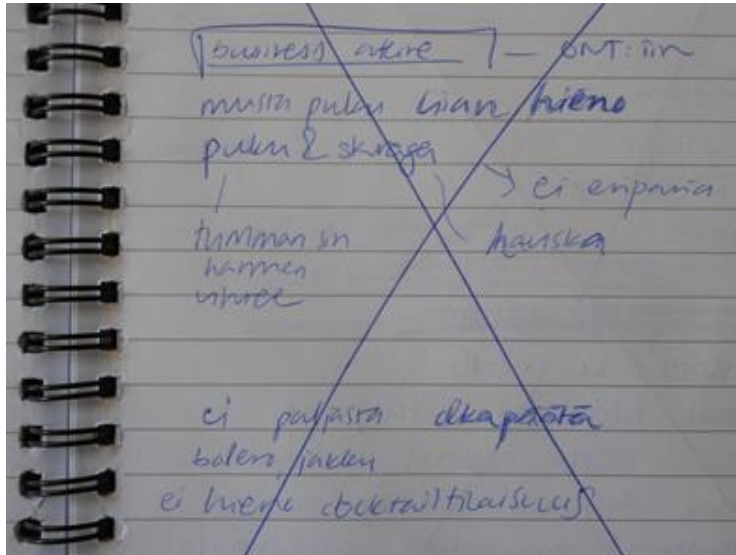 business attire — ONT:iin
musta puku liian hieno
puku & skraga
ei eriparia
tumman sin hauska
harmea
vihree
ei paljasta olkapäätä
bolero, jakku
ei hieno cocktailtilaisuus